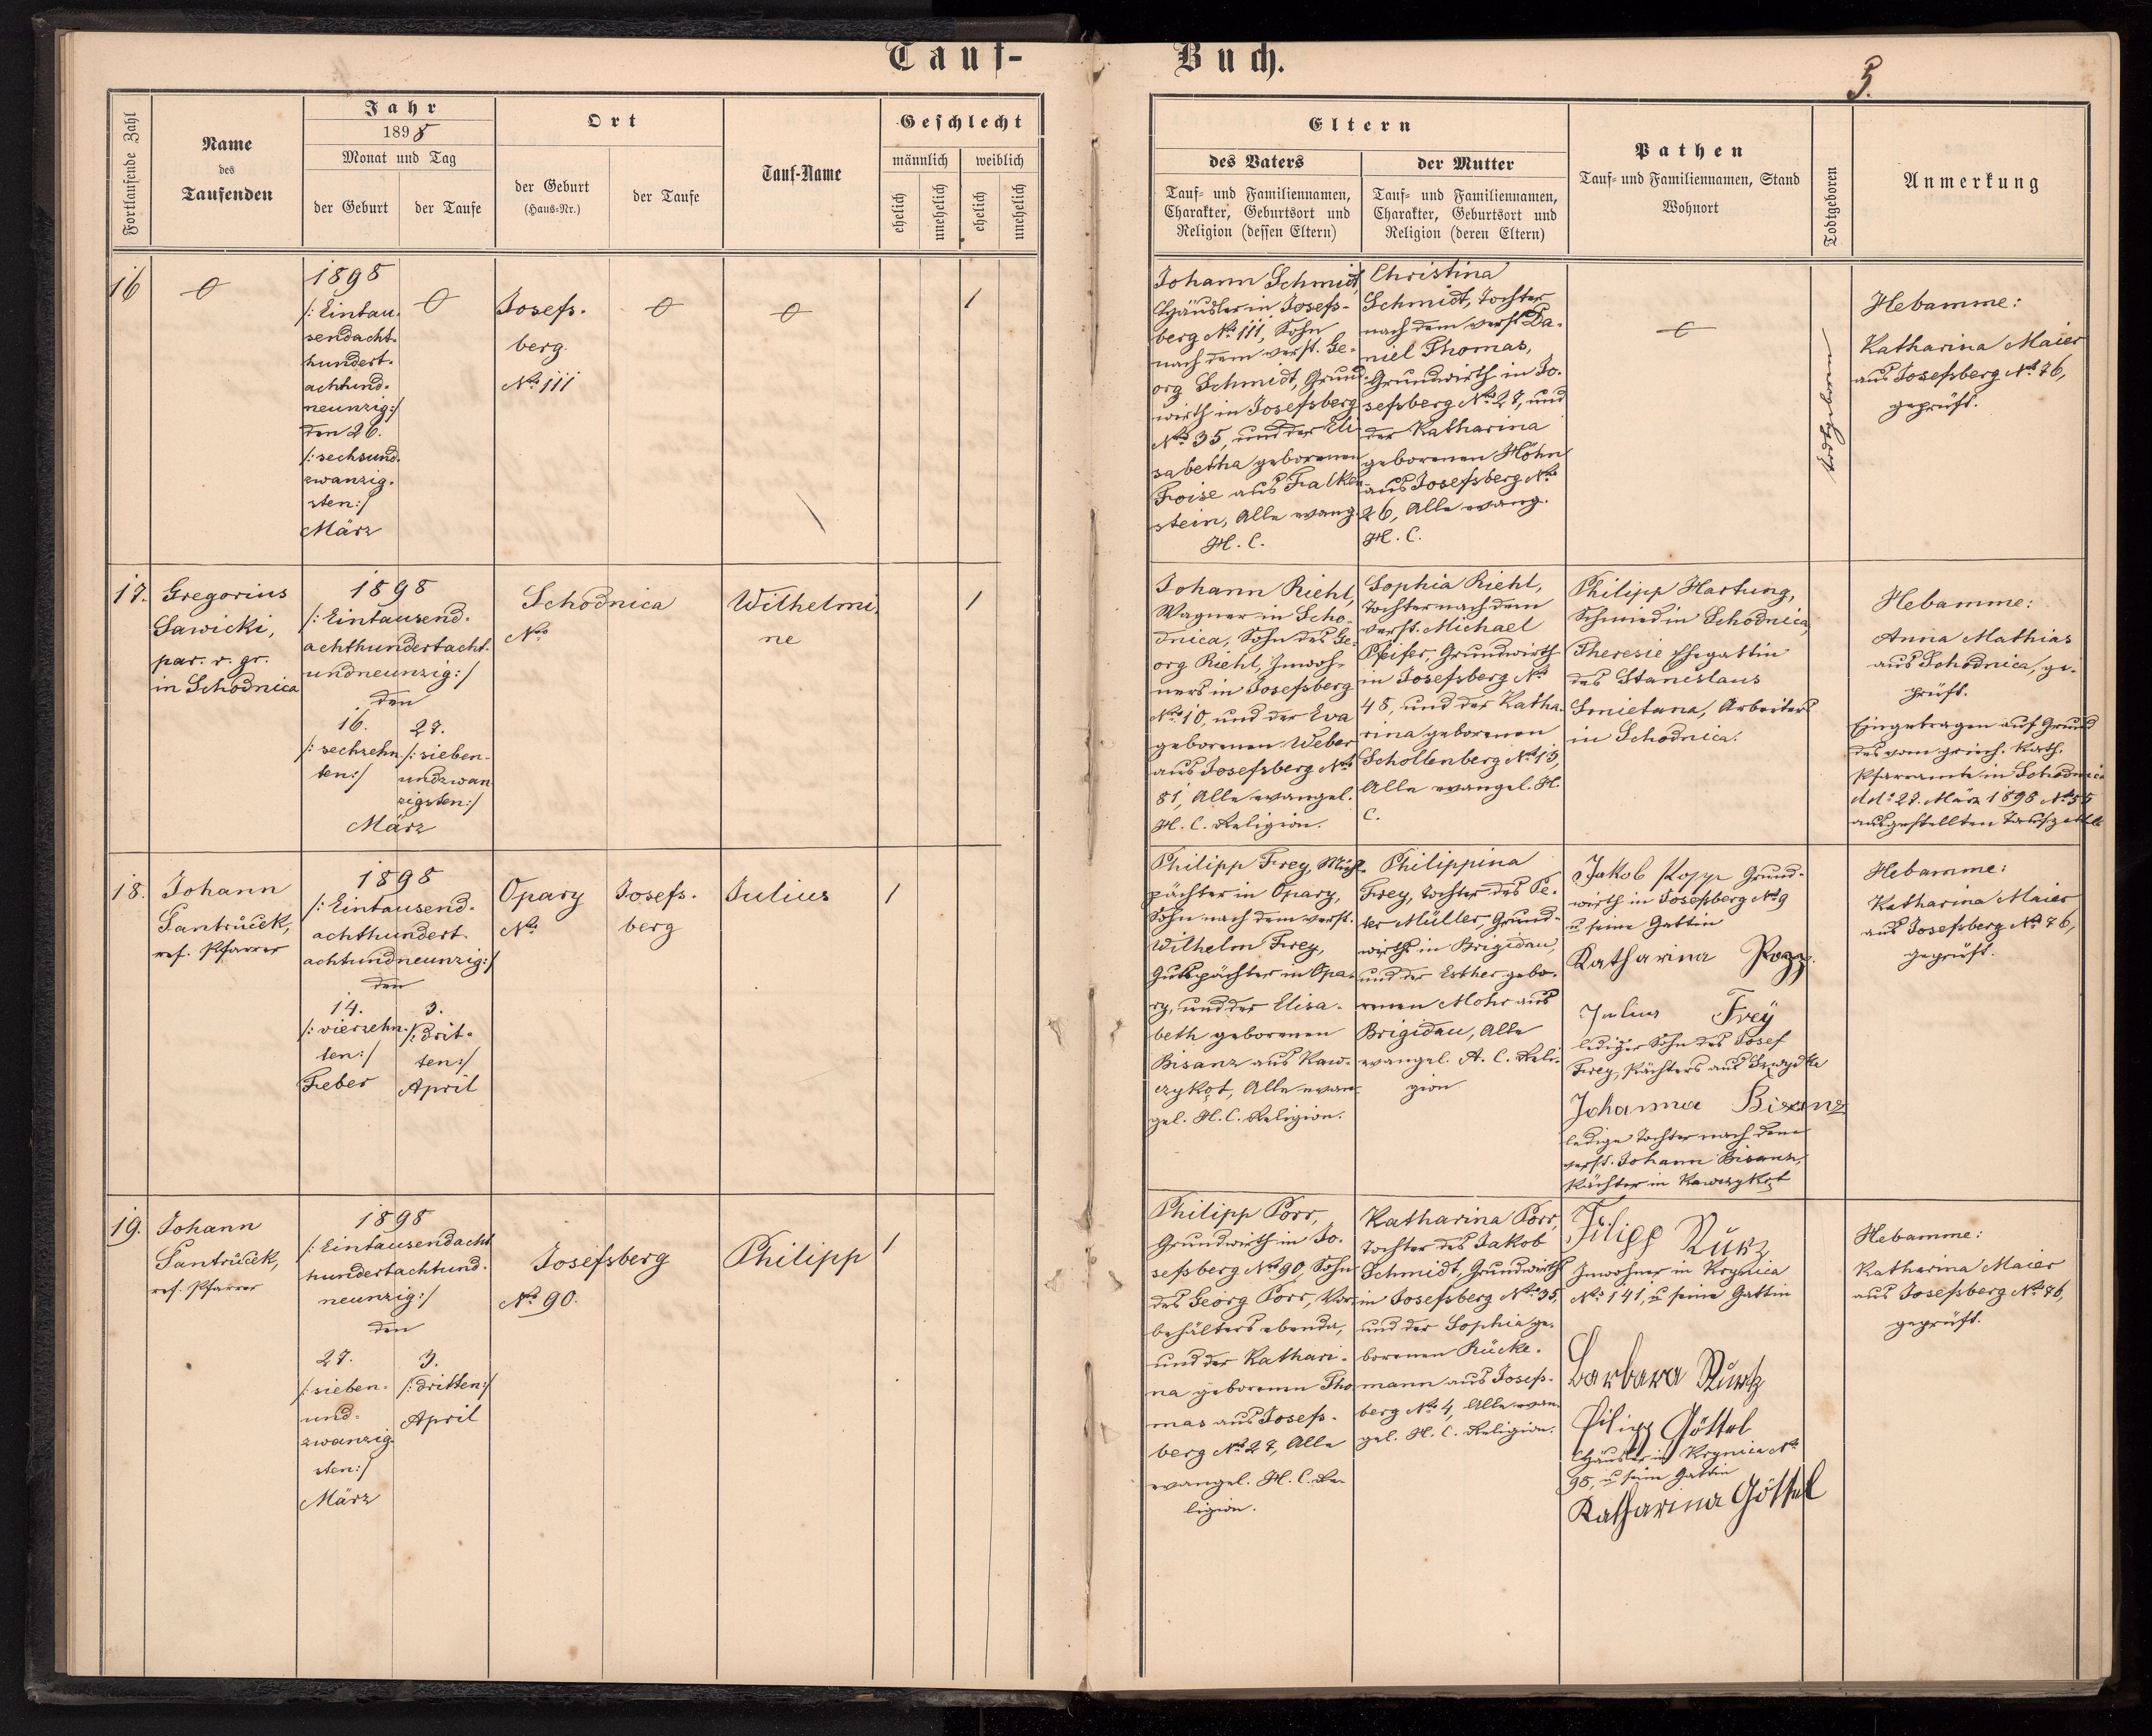 Tauf-
Buch.
5.
Fortlaufende Zahl
Name
des
Taufenden
Jahr
1898
Monat und Tag
der Geburt
der Taufe
Ort
der Geburt
(Haus-Nr.)
der Taufe
Tauf-Name
Geschlecht
männlich
weiblich
ehelich
unehelich
ehelich
unehelich
Eltern
des Vaters
Tauf- und Familiennamen,
Charakter, Geburtsort und
Religion (dessen Eltern)
der Mutter
Tauf- und Familiennamen,
Charakter, Geburtsort und
Religion (deren Eltern)
Pathen
Tauf- und Familiennamen, Stand
Wohnort
Todtgeboren
Anmerkung
16
1898
/: Eintau-
sendacht-
hundert-
achtund-
neunzig:/
den 26.
/: sechsund-
zwanzig-
sten:/
März
Josefs-
berg
No. 111
1
Johann Schmidt,
Häusler in Josefs-
berg No. 111, Sohn
nach dem verst. Ge-
org Schmidt, Grund-
wirth in Josefsberg
No. 35, und der Eli-
sabetha geborenen
Froise aus Falken-
stein, Alle evang.
H. C.
Christina
Schmidt, Tochter
nach dem verst. Da-
niel Thomas,
Grundwirth in Jo-
sefsberg No. 27, und
der Katharina
geborenen Höhn
aus Josefsberg No.
26, Alle evang.
H. C.
Todtgeboren
Hebamme:
Katharina Maier
aus Josefsberg No. 76,
geprüft.
17.
Gregorius
Sawicki,
par. r. gr.
in Schodnica
1898
/: Eintausend-
achthundertacht-
undneunzig:/
den
16.
/: sechzehn-
ten:/
27.
/: sieben-
undzwan-
zigsten:/
März
Schodnica
No.
Wilhelmi-
ne
1
Johann Riehl,
Wagner in Scho-
dnica, Sohn des Ge-
org Riehl, Inwoh-
ners in Josefsberg
No. 10, und der Eva
geborenen Weber
aus Josefsberg No.
81, Alle evangel.
H. C. Religion.
Sophia Riehl,
Tochter nach dem
verst. Michael
Pfeifer, Grundwirth
in Josefsberg No.
48, und der Katha-
rina geborenen
Schollenberg No. 13,
Alle evangel. H.
C.
Philipp Hartung,
Schmied in Schodnica,
Theresie Ehegattin
des Stanislaus
Smietana, Arbeiters
in Schodnica.
Hebamme:
Anna Mathias
aus Schodnica, ge-
prüft.
Eingetragen auf Grund
des vom griech. kath.
Pfarramte in Schodnica
ddo 27. März 1898 No. 55
ausgestellten Taufzettels
18.
Johann
Jantrůček,
ref. Pfarrer
1898
/: Eintausend-
achthundert-
achtundneunzig:/
den
14.
/: vierzehn-
ten:/
Feber
3.
/: drit-
ten:/
April
Opary
No.
Josefs-
berg
Julius
1
Philipp Frey,
pächter in Opary,
Sohn nach dem verst.
Wilhelm Frey,
Gutspächter in Opa-
ry, und der Elisa-
beth geborenen
Bisanz aus Kaw-
czykąt, Alle evan-
gel. H. C. Religion.
Philippina
Frey, Tochter des Pe-
ter Müller, Grund-
wirths in Brigidau,
und der Esther gebo-
renen Mohr aus
Brigidau, Alle
evangel. A. C. Reli-
gion
Jakob Kopp Grund-
wirth in Josefsberg No. 9
u. seine Gattin
Katharina Kopp
Julius Frey
lediger Sohn des Josef
Frey, Pächters aus
Johanna Bisanz
ledige Tochter nach dem
verst. Johann Bisanz,
Pächter in Kawczykąt
Hebamme:
Katharina Maier
aus Josefsberg No. 76,
geprüft.
19.
Johann
Jantrůček,
ref. Pfarrer
1898
/: Eintausendacht-
hundertachtund-
neunzig:/
den
27.
/: sieben-
und-
zwanzig-
sten:/
März
3.
/: dritten:/
April
Josefsberg
No. 90.
Philipp
1
Philipp Porr,
Grundwirth in Jo-
sefsberg No. 90, Sohn
des Georg Porr, Vor-
behälters ebenda,
und der Kathari-
na geborenen Tho-
mas aus Josefs-
berg No. 27, Alle
evangel. H. C. Re-
ligion.
Katharina Porr,
Tochter des Jakob
Schmidt, Grundwirths
in Josefsberg No. 35,
und der Sophia ge-
borenen Rücke-
mann aus Josefs-
berg No. 4, Alle evan-
gel. H. C. Religion.
Filipp Kurz
Inwohner in Krynica
No. 141, u. seine Gattin
Barbara Kurtz
Filipp Göttel
Häusler in Krynica No.
98, u. seine Gattin
Katharina Göttel
Hebamme:
Katharina Maier
aus Josefsberg No. 76,
geprüft.